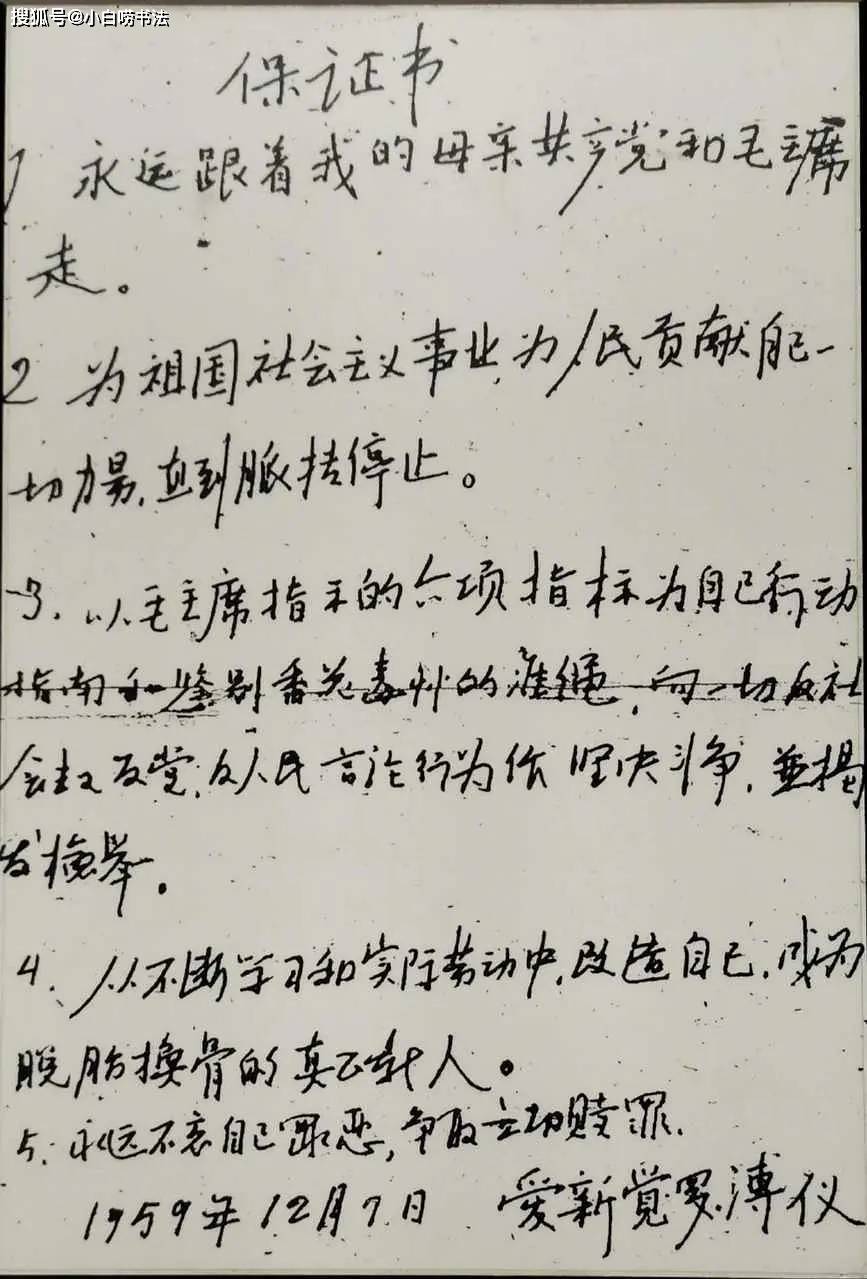 搜狐号@小白唠书法
保证书
1 永远跟着我的母亲共产党和毛主席
走。
2 为祖国社会主义事业,为人民贡献自己一
切力量,直到脉搏停止。
3. 以毛主席指示的六项指标为自己行动
指南和鉴别香花毒草的准绳,向一切反社
会主义反党,反人民言论行为作坚决斗争,並揭
发检举。
4. 从不断学习和实际劳动中,改造自己,成为
脱胎换骨的真正新人。
5. 永远不忘自己罪恶,争取立功赎罪.
1959年12月7日 爱新觉罗溥仪